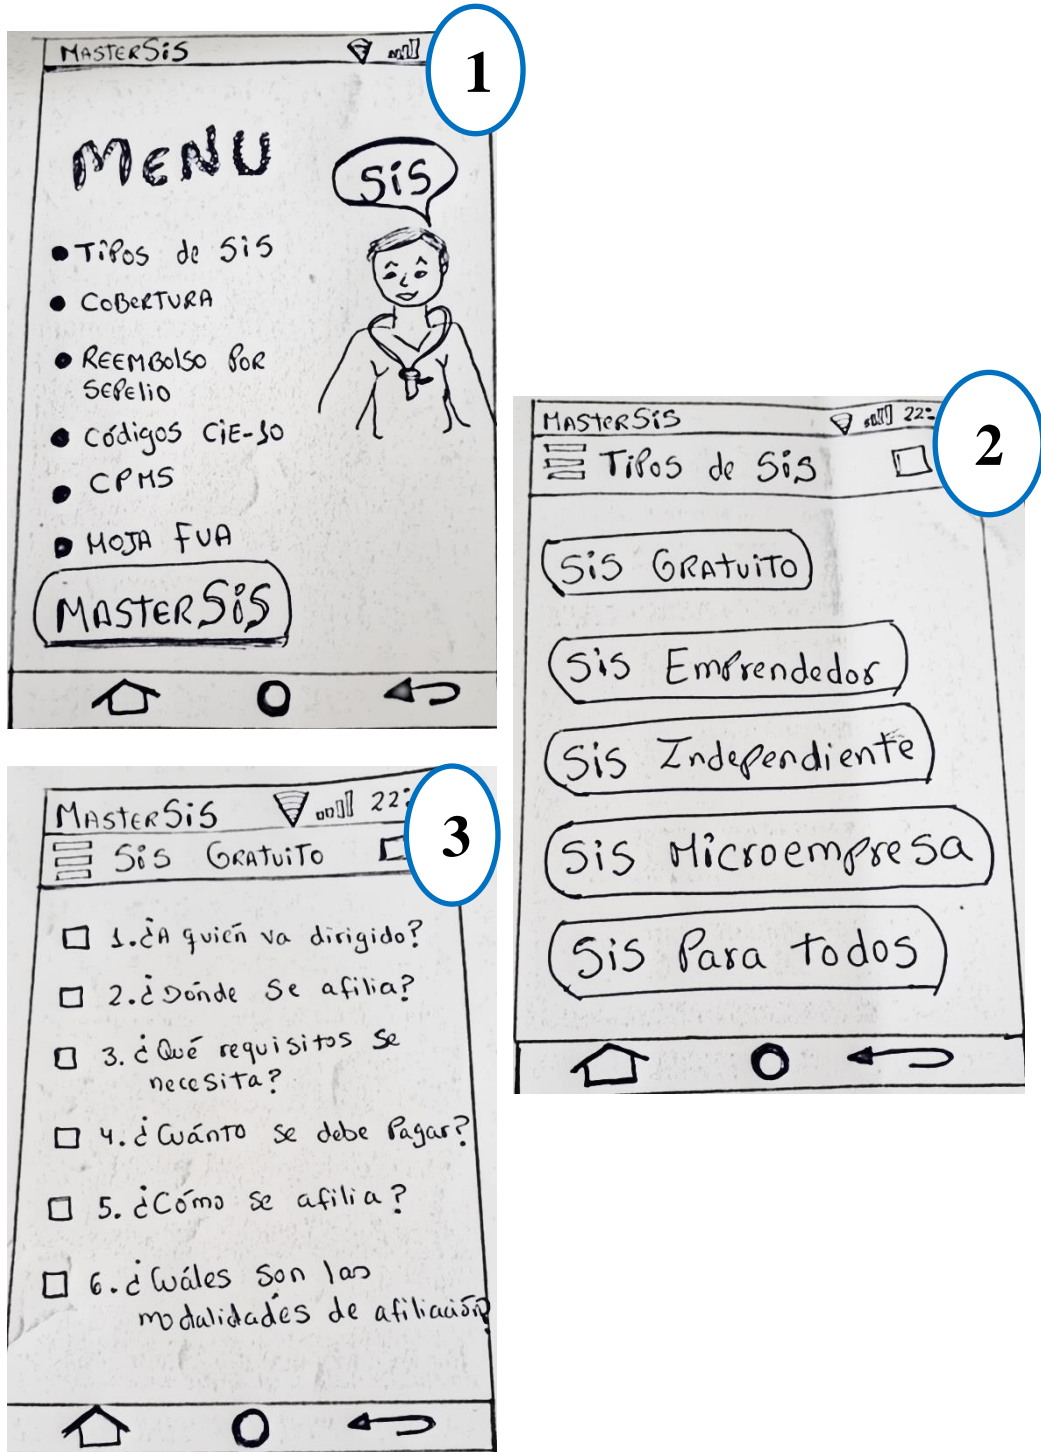 MASTERSiS
1
MENU
SiS
TiPos de SiS
COBERTURA
REEMBOLSO POR
SEPELIO
Códigos CiE-10
CPMS
HOJA FUA
MASTERSiS
MASTERSiS
22:
2
Tipos de Sis
Sis GRATUITO
Sis Emprendedor
Sis Independiente
Sis Microempresa
Sis Para todos
MASTERSiS
22:
3
Sis GRATUITO
1. ¿A quién va dirigido?
2. ¿Dónde se afilia?
3. ¿Qué requisitos se
necesita?
4. ¿Cuánto se debe Pagar?
5. ¿Cómo se afilia?
6. ¿Cuáles son las
modalidades de afiliación?